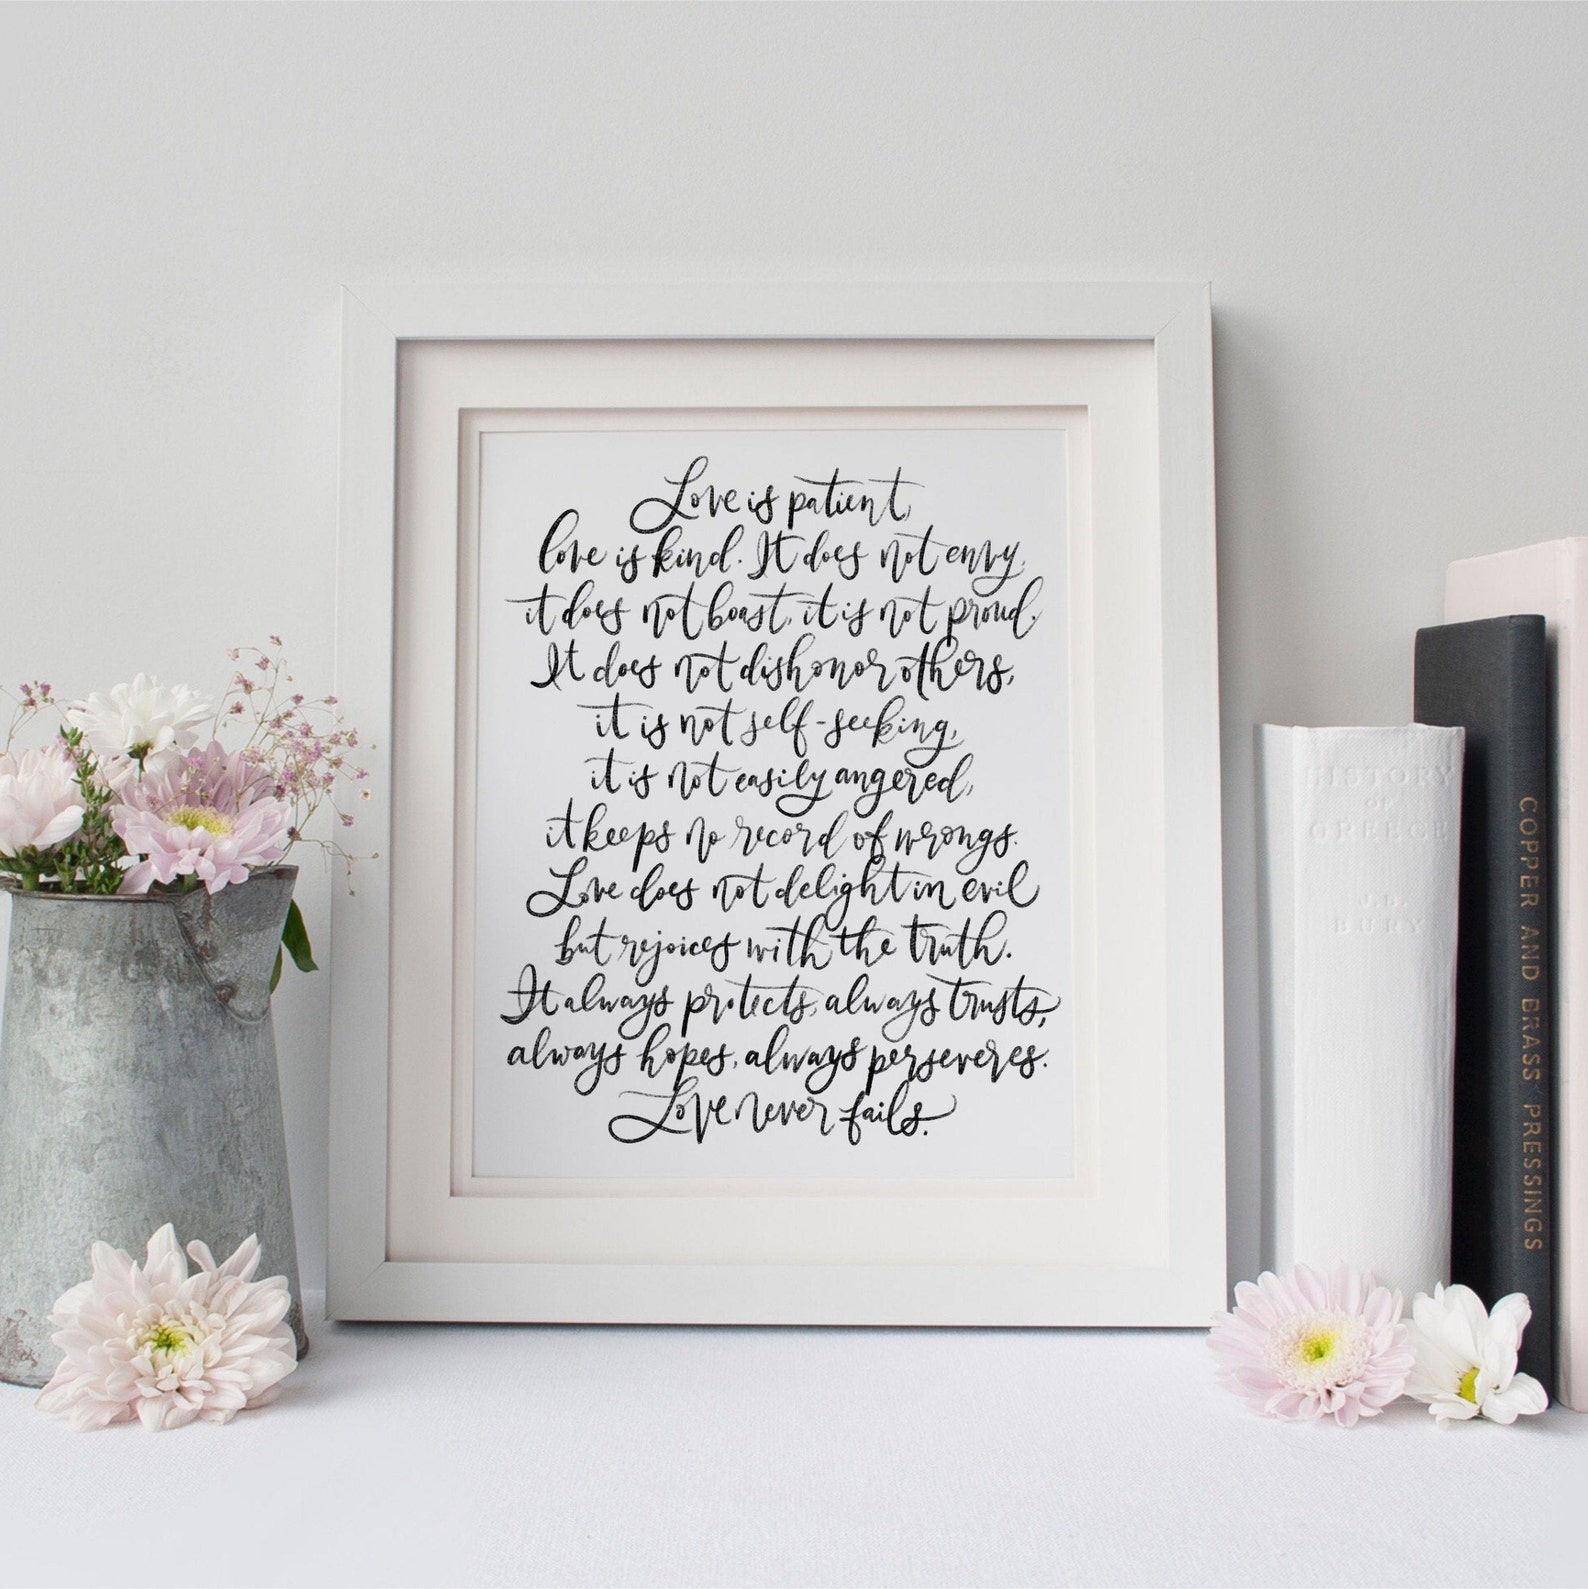 Love is patient,
love is kind. It does not envy,
it does not boast, it is not proud.
It does not dishonor others,
it is not self-seeking,
it is not easily angered,
it keeps no record of wrongs.
Love does not delight in evil
but rejoices with the truth.
It always protects, always trusts,
always hopes, always perseveres.
Love never fails.
HISTORY
OF
GREECE
J.B.
BURY
COPPER AND BRASS PRESSINGS